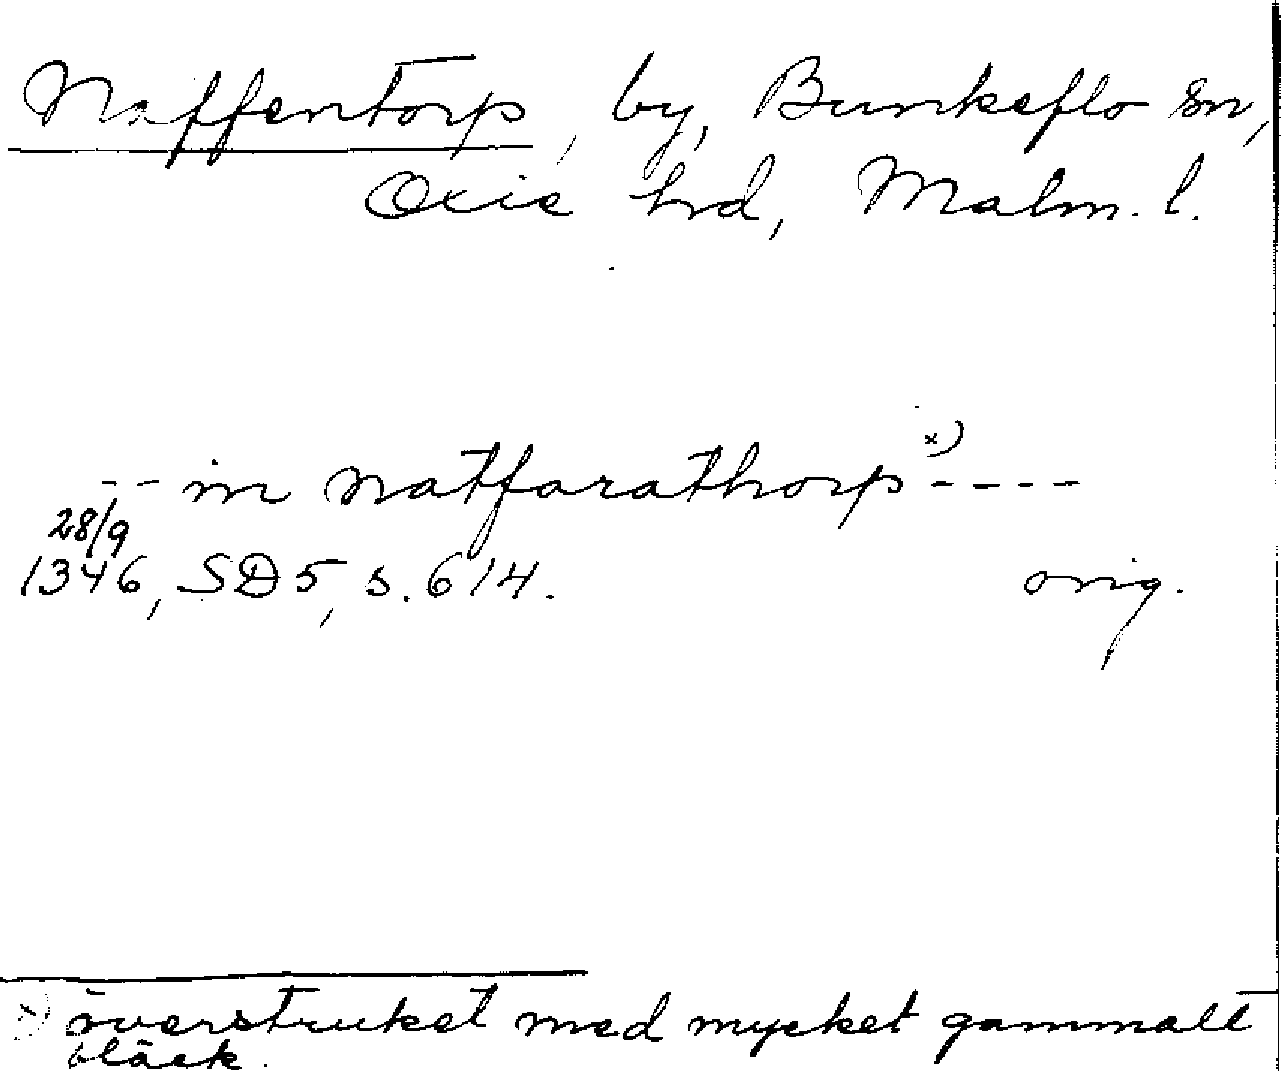 Naffentorp, by, Bunkeflo sn,
Oxie hrd, Malm. l.
-- in natfarathorp x) ----
28/9
1346, SD 5, s. 614. orig.
x) överstruket med mycket gammalt
bläck.